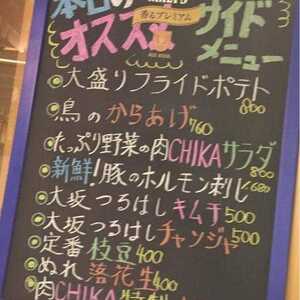 本日の
オススメ
香るプレミアム
サイド
メニュー
大盛りフライドポテト 800
鳥のからあげ 760
たっぷり野菜の肉CHIKAサラダ 800
新鮮!豚のホルモン刺し 680
大坂つるはしキムチ 500
大坂つるはしチャンジャ 500
定番枝豆 400
ぬれ落花生 400
肉CHIKA特製